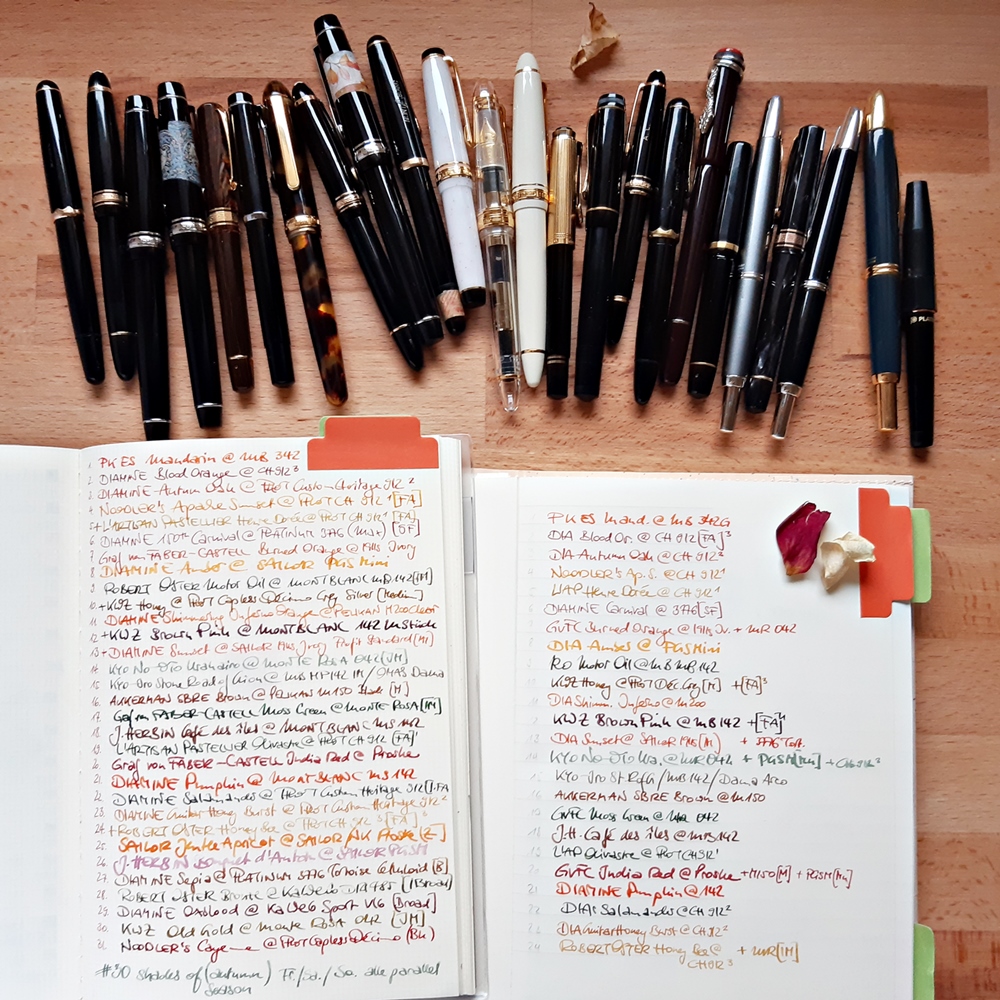 PLA
1 PK ES Mandarin @ MB 342
2 DIAMINE Blood Orange @ CH 912³
3 DIAMINE Autumn Oak @ PILOT Custom Heritage 912²
4 NOODLER'S Apache Sunset @ PILOT CH 912¹ [FA]
5 + L'ARTISAN PASTELLIER Heure Dorée @ PILOT CH 912¹ [FA]
6 DIAMINE 150th Carnival @ PLATINUM 3776 [SF]
7 Graf von FABER-CASTELL Burned Orange @ Ivory
8 DIAMINE Amber @ SAILOR PGS Mini
9 ROBERT OSTER Motor Oil @ MONTBLANC 142 [M]
10 + KWZ Honey @ PILOT Capless Décimo Grey Silver [Medium]
11 DIAMINE Shimmering Inferno Orange @ PELIKAN M200
12 + KWZ Brown Pink @ MONTBLANC 142 M'Stück
13 + DIAMINE Sunset @ SAILOR Ivory Profit Standard [M]
14 KYO No OTO @ MONTE ROSA 042 [M]
15 KYO-Iro Stone Road of Gion @ 142 / OMAS Dama
16 AKKERMAN SBRE Brown @ PELIKAN M150 [M]
17 Graf von FABER-CASTELL Moss Green @ MONTE ROSA [M]
18 J. HERBIN Café des îles @ MONTBLANC MS 142
19 L'ARTISAN PASTELLIER Olivastre @ PILOT CH 912 [FA]¹
20 Graf von FABER-CASTELL India Red @ Proske
21 DIAMINE Pumpkin @ MONTBLANC MS 142
22 DIAMINE Salamander @ PILOT Custom Heritage 912 [FA
23 DIAMINE Guitar Honey Burst @ PILOT Custom Heritage 912²
24 + ROBERT OSTER Honey Bee @ PILOT CH 912³ [FA]
25 SAILOR Jentle Apricot @ SAILOR Proske
26 J. HERBIN Bouquet d'Antan @ SAILOR PGSM
27 DIAMINE Sepia @ PLATINUM 3776 Tortoise Celluloid [B]
28 ROBERT OSTER Bronze @ KAWECO DIA [Broad]
29 DIAMINE Oxblood @ KAWECO Sport V16 [Broad]
30 KWZ Old Gold @ Monte ROSA 042 [M]
31 NOODLER'S Cayenne @ PILOT Capless Décimo
#30 shades of (autumn) Fr./Sa./So. alle parallel
Season
1 PK ES Mand. @ MB 342G
DIA Blood Or. @ CH 912 [FA]³
DIA Autumn Oak @ CH 912²
NOODLER'S Ap. S. @ CH 912¹
L'AP Heure Dorée @ CH 912¹
DIAMINE Carnival @ 3776 [SF]
GVFC Burned Orange @ + MR 042
DIA Amber @ PGS Mini
RO Motor Oil @ MB 142
KWZ Honey @ PILOT Déc. Grey [M] + [FA]³
DIA Shimm. Inferno @ M200
KWZ Brown Pink @ MB 142 + [FA]¹
DIA Sunset @ SAILOR [M] + 3776 Tort.
14 KYO No OTO @ MR 042 + PGSM + CH 912³
15 KYO-Iro St Rd Gi / MB 142 / Dama Arco
AKKERMAN SBRE Brown @ M150
GVFC Moss Green @ MR 042
J.H. Café des îles @ MB 142
L'AP Olivastre @ PILOT CH 912¹
20 GVFC India Red @ Proske + M150 [M] + PGSM
21 DIAMINE Pumpkin @ 142
22 DIA: Salamander @ CH 912²
23 DIA Guitar Honey Burst @ CH 912²
24 ROBERT OSTER Honey Bee @ + MR [M]
CH 912³